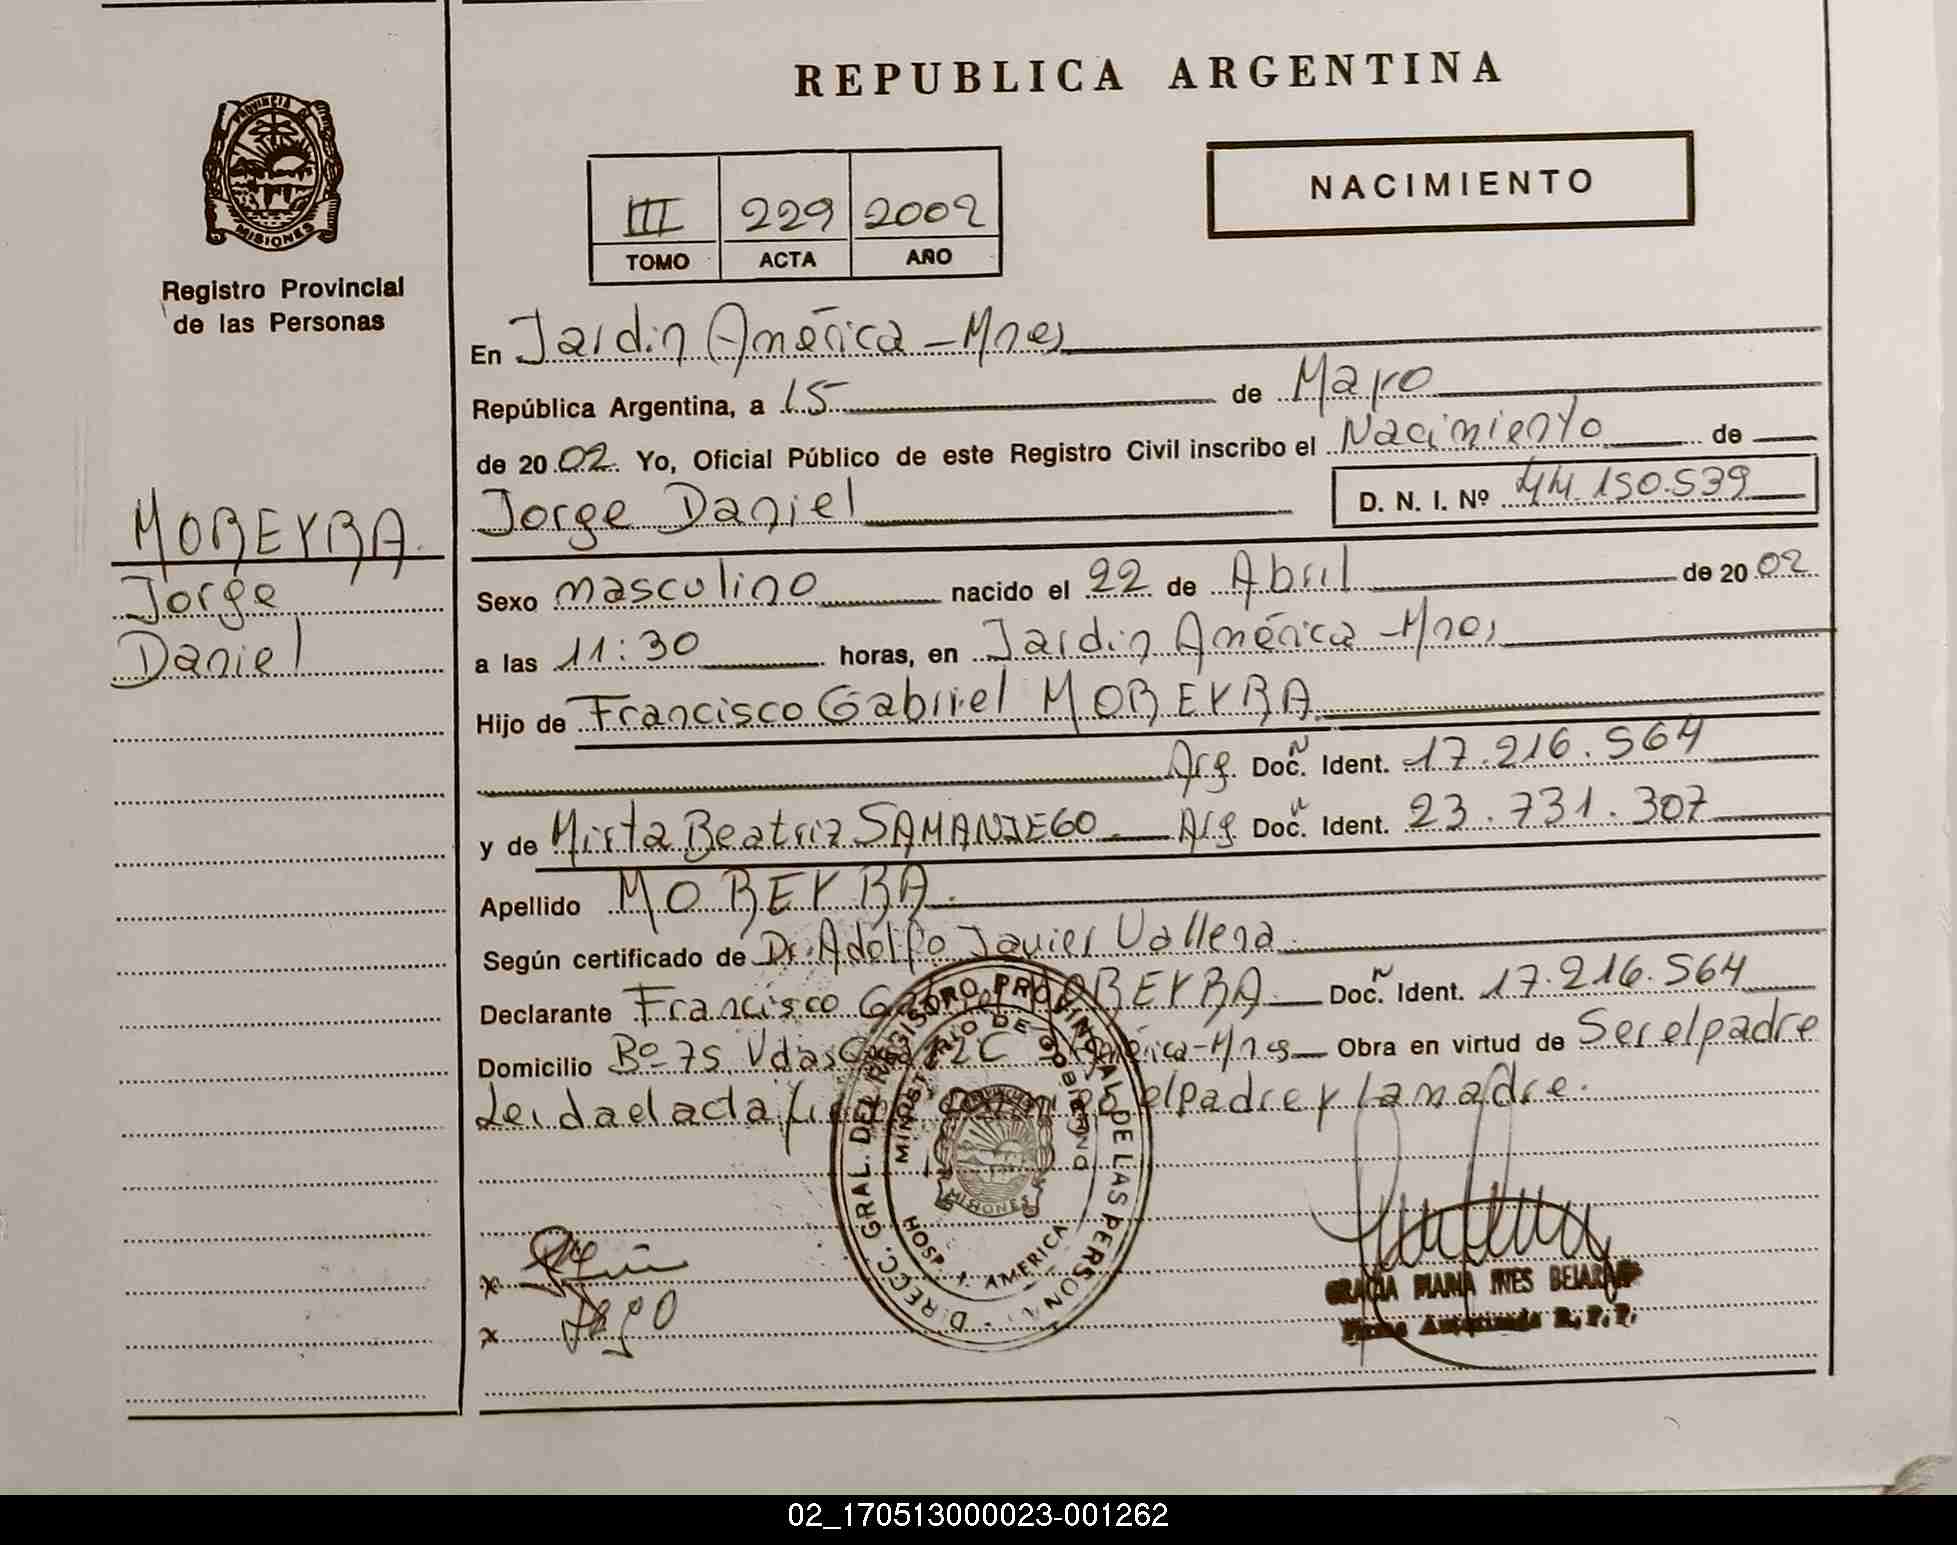 REPUBLICA ARGENTINA
PROVINCIA DE
MISIONES
Registro Provincial
de las Personas
NACIMIENTO
III 229 2002
TOMO ACTA AÑO
En Jardin América - Mnes
República Argentina, a 15 de Mayo
de 2002. Yo, Oficial Público de este Registro Civil inscribo el Nacimiento de
Jorge Daniel D. N. I. Nº 44.150.539
MOREYRA.
Jorge
Daniel
Sexo masculino nacido el 22 de Abril de 2002
a las 11:30 horas, en Jardin América - Mnes
Hijo de Francisco Gabriel MOREYRA
Arg. Doc. Ident. 17.216.564
y de Mirta Beatriz SAMANIEGO. Arg Doc. Ident. 23.731.307
Apellido MOREYRA.
Según certificado de Dr. Adolfo Javier Vallena
Declarante Francisco MOREYRA Doc. Ident. 17.216.564
Domicilio Bº 75 Vdas América - Mnes Obra en virtud de Ser el padre
Leida el acta el padre y la madre.
DIRECC. GRAL. DEL REGISTRO PROVINCIAL DE LAS PERSONAS
MINISTERIO DE GOBIERNO
MISIONES
HOSP. J. AMERICA
x
x
GRACIA MARIA INES BEJARANO
Firma Autorizada R.P.P.
02_170513000023-001262